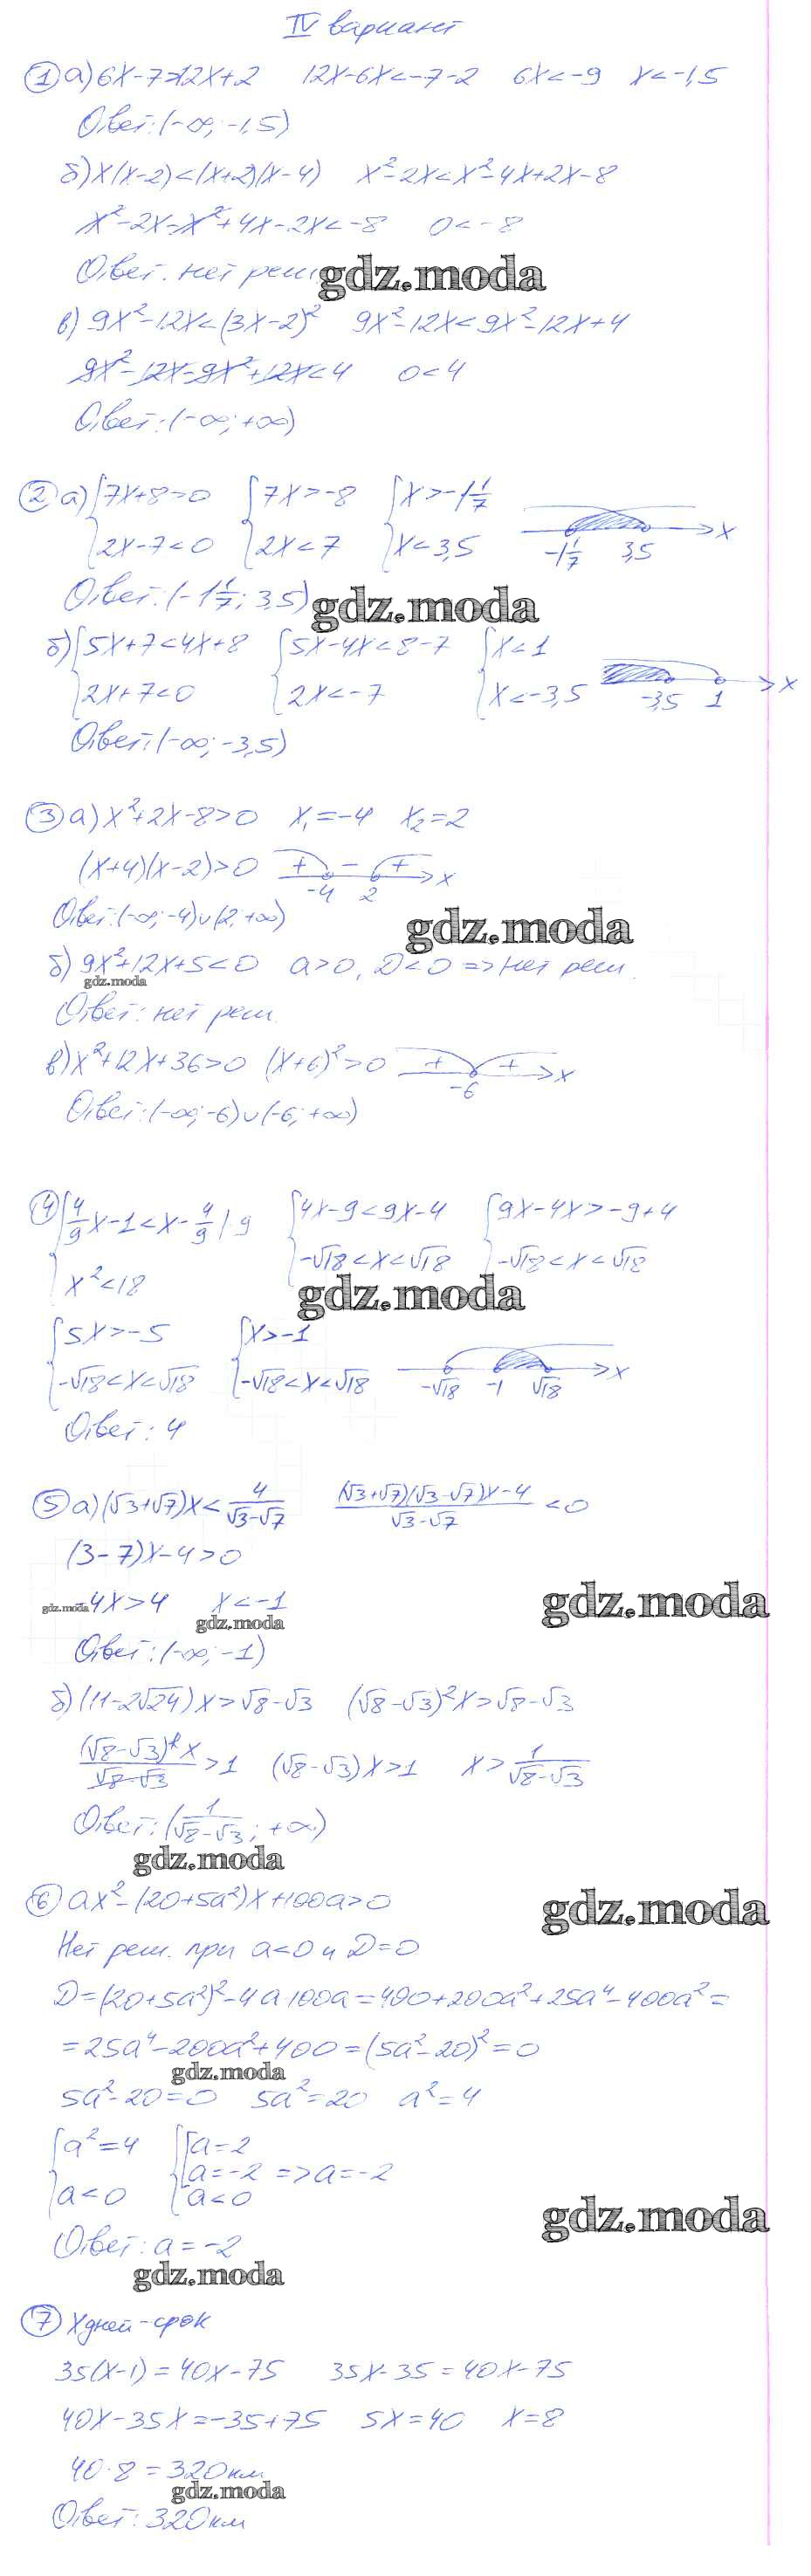 IV вариант
① а) 6x-7>12x+2   12x-6x<-7-2   6x<-9   x<-1,5
Ответ: (-∞; -1,5)
б) x(x-2)<(x+2)(x-4)   x²-2x<x²-4x+2x-8
x²-2x-x²+4x-2x<-8   0<-8
Ответ: нет реш.
gdz.moda
в) 9x²-12x<(3x-2)²   9x²-12x<9x²-12x+4
9x²-12x-9x²+12x<4   0<4
Ответ: (-∞; +∞)
② а) {7x+8>0   {7x>-8   {x>-1 1/7
{2x-7<0   {2x<7   {x<3,5   -1 1/7   3,5   x
Ответ: (-1 1/7; 3,5)
gdz.moda
б) {5x+7<4x+8   {5x-4x<8-7   {x<1
{2x+7<0   {2x<-7   {x<-3,5   -3,5   1   x
Ответ: (-∞; -3,5)
③ а) x²+2x-8>0   x₁=-4   x₂=2
(x+4)(x-2)>0   + - +   -4   2   x
Ответ: (-∞; -4)∪(2; +∞)
gdz.moda
б) 9x²+12x+5<0   a>0, D<0 => нет реш.
gdz.moda
Ответ: нет реш.
в) x²+12x+36>0   (x+6)²>0   + +   -6   x
Ответ: (-∞; -6)∪(-6; +∞)
④ {4/9 x-1<x-4/9 | 9   {4x-9<9x-4   {9x-4x>-9+4
{x²<18   {-√18<x<√18   {-√18<x<√18
gdz.moda
{5x>-5   {x>-1
{-√18<x<√18   {-√18<x<√18   -√18   -1   √18   x
Ответ: 4
⑤ а) (√3+√7)x< 4/(√3-√7)   ((√3+√7)(√3-√7)x-4)/(√3-√7) <0
(3-7)x-4>0
gdz.moda
-4x>4   x<-1
gdz.moda
gdz.moda
Ответ: (-∞; -1)
б) (11-2√24)x>√8-√3   (√8-√3)²x>√8-√3
(√8-√3)²x/(√8-√3) >1   (√8-√3)x>1   x> 1/(√8-√3)
Ответ: (1/(√8-√3); +∞)
gdz.moda
⑥ ax²-(20+5a²)x+100a>0
gdz.moda
Нет реш. при a<0 и D=0
D=(20+5a²)²-4a·100a=400+200a²+25a⁴-400a²=
=25a⁴-200a²+400=(5a²-20)²=0
gdz.moda
5a²-20=0   5a²=20   a²=4
{a²=4   {[a=2
[a=-2 => a=-2
{a<0   {a<0
gdz.moda
Ответ: a=-2
gdz.moda
⑦ x дней - срок
35(x-1)=40x-75   35x-35=40x-75
40x-35x=-35+75   5x=40   x=8
40·8=320км
gdz.moda
Ответ: 320км